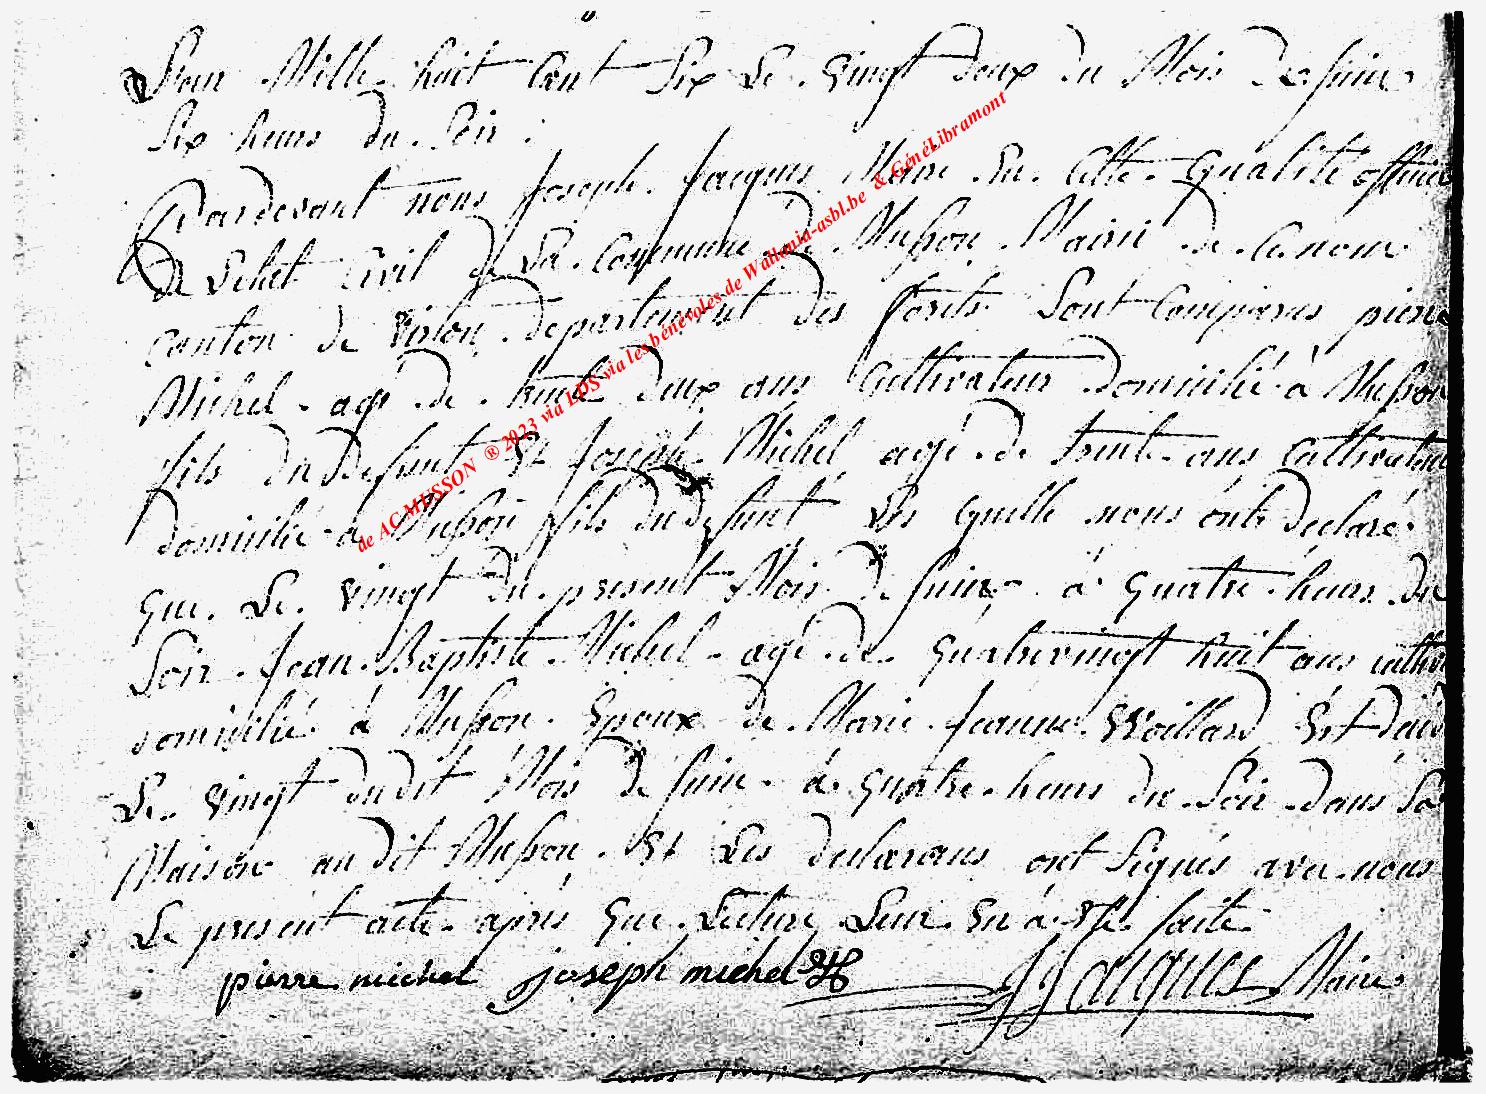 L'an Mille huit Cent Six Le vingt deux du Mois De Juin
Six heurs du Soir.
Pardevant nous Joseph Jacques Maire En Cette Qualité officier
De L'etat Civil de La Commune de Musson Mairie de Ce nom
Canton de Virton departement des forêts Sont Comparus pierre
Michel agé de trente deux ans Cultivateur domicilié à Musson
fils du Defunt Et Joseph Michel agé de trente ans Cultivateur
domicilié à Musson fils du defunt Les quelle nous ont declaré
que Le vingt du present Mois de Juin à quatre heurs du
Soir Jean Baptiste Michel agé de quatrevingt huit ans cultiv
domicilié à Musson Epoux de Marie Jeanne Woillard Est decedé
Le vingt du dit Mois de Juin à quatre heurs du Soir dans Sa
Maison au dit Musson Et Les declarans ont Signés avec nous
Le present acte aprés que Lecture Leur En à Eté faite
pierre michel joseph michel JJacques Maire
de AC MUSSON ® 2023 via LDS via les bénévoles de Wallonia-asbl.be & GénéLibramont